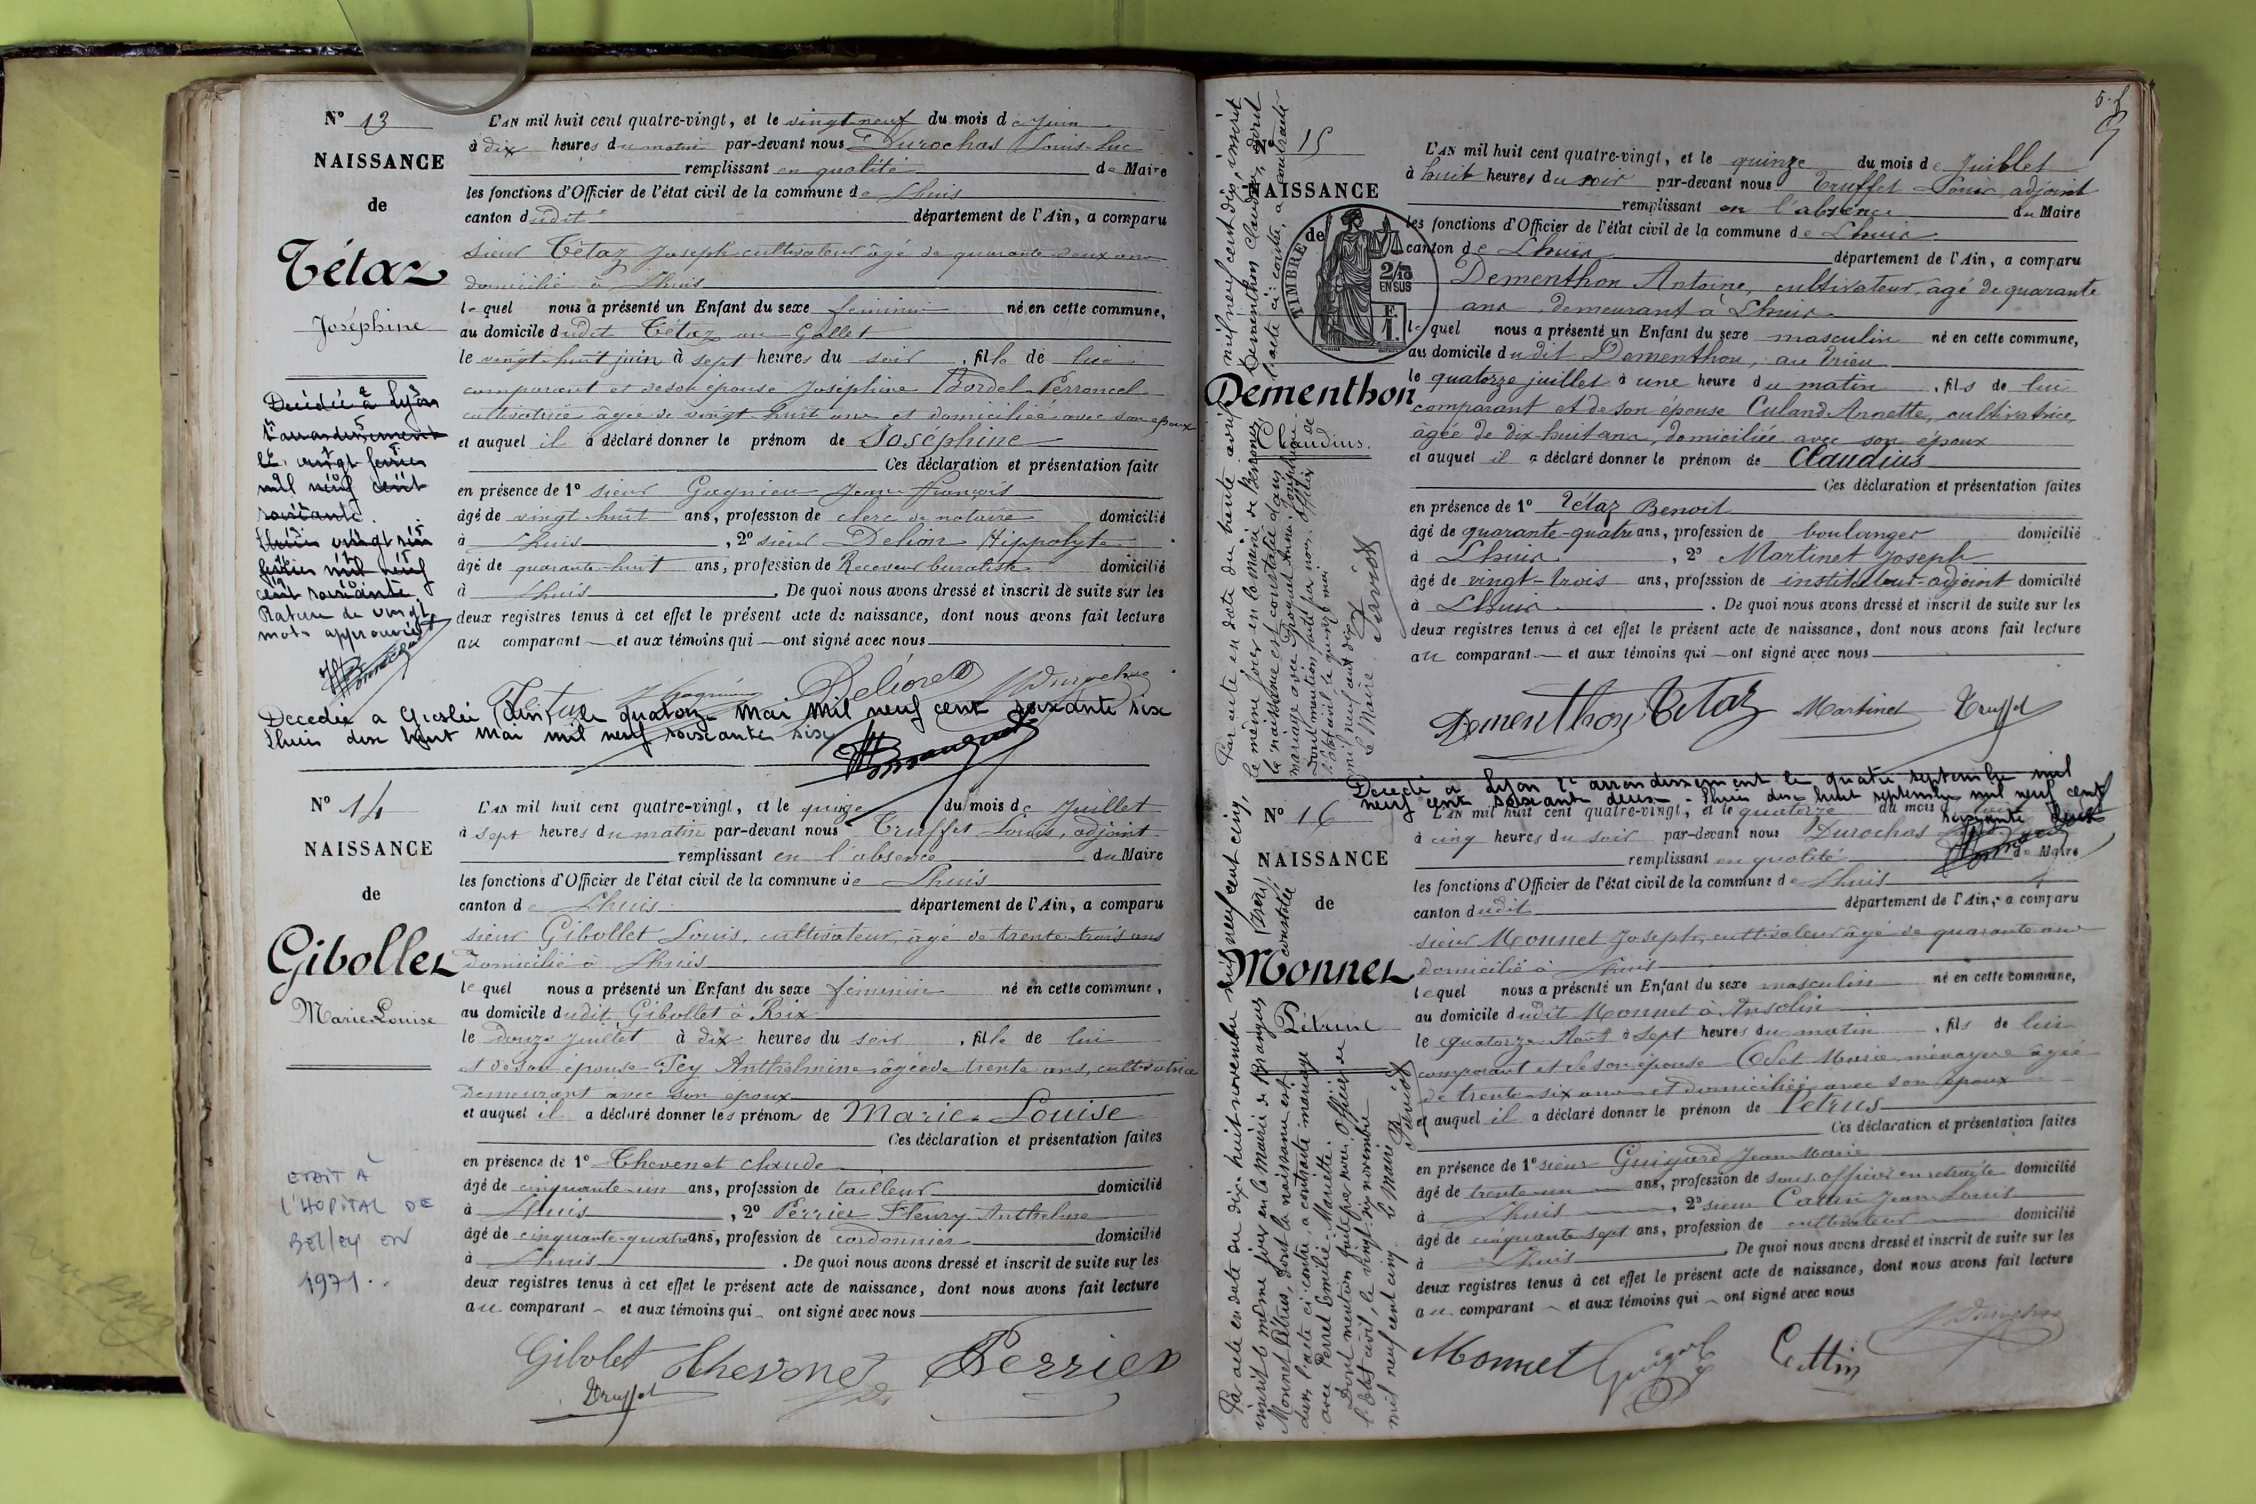 N° 13
NAISSANCE
de
Tétaz
Joséphine
Décédée à Lyon
arrondissement
le vingt février
mil neuf cent
soixante.
Lhuis vingt six
février mil neuf
cent soixante.
Rature de vingt
mots approuvée
L'AN mil huit cent quatre-vingt, et le vingt neuf du mois de Juin
à dix heures du matin par-devant nous Durochas Louis Luc
remplissant en qualité de Maire
les fonctions d'Officier de l'état civil de la commune de Lhuis
canton dudit département de l'Ain, a comparu
sieur Tétaz Joseph cultivateur âgé de quarante deux ans
domicilié à Lhuis
lequel nous a présenté un Enfant du sexe féminin né en cette commune,
au domicile dudit Tétaz au Gollet
le vingt huit juin à sept heures du soir, fille de lui
comparant et de son épouse Joséphine Bordel Perroncel
cultivatrice âgée de vingt huit ans et domiciliée avec son époux
et auquel il a déclaré donner le prénom de Joséphine
Ces déclaration et présentation faites
en présence de 1° sieur Gagnieu Jean François
âgé de vingt huit ans, profession de clerc de notaire domicilié
à Lhuis, 2° sieur Delion Hippolyte
âgé de quarante huit ans, profession de Receveur buraliste domicilié
à Lhuis. De quoi nous avons dressé et inscrit de suite sur les
deux registres tenus à cet effet le présent acte de naissance, dont nous avons fait lecture
au comparant et aux témoins qui ont signé avec nous
Tétaz
Decedée a (Ain) le quatorze Mai mil neuf cent soixante six
Lhuis dix huit Mai mil neuf soixante six
N° 14
NAISSANCE
de
Gibollet
Marie-Louise
ETAIT À
L'HOPITAL DE
BELLEY EN
1971..
L'AN mil huit cent quatre-vingt, et le quinze du mois de Juillet
à sept heures du matin par-devant nous Truffet Louis, adjoint
remplissant en l'absence du Maire
les fonctions d'Officier de l'état civil de la commune de Lhuis
canton de Lhuis département de l'Ain, a comparu
sieur Gibollet Louis, cultivateur, âgé de trente trois ans
domicilié à Lhuis
lequel nous a présenté un Enfant du sexe féminin né en cette commune,
au domicile dudit Gibollet à Rix
le douze juillet à dix heures du soir, fille de lui
et de son épouse Pey Anthelmine âgée de trente ans, cultivatrice
demeurant avec son époux
et auquel il a déclaré donner les prénoms de Marie-Louise
Ces déclaration et présentation faites
en présence de 1° Thevenet Claude
âgé de cinquante-un ans, profession de tailleur domicilié
à Lhuis, 2° Perrier Fleury Anthelme
âgé de cinquante-quatre ans, profession de cordonnier domicilié
à Lhuis. De quoi nous avons dressé et inscrit de suite sur les
deux registres tenus à cet effet le présent acte de naissance, dont nous avons fait lecture
au comparant et aux témoins qui ont signé avec nous
Gibolet Thevenet Perrier
Truffet
N° 15
NAISSANCE
de
Dementhon
Claudius.
TIMBRE
2/10
EN SUS
Par acte en date du trente avril mil neuf cent dix, inscrit
le même jour en la mairie de Dementhon Claudius, dont
la naissance est constatée dans l'acte ci-contre, a contracté
mariage avec
Dont mention faite par nous, Officier de
l'état civil le quinze mai
mil neuf cent dix
Le Maire
L'AN mil huit cent quatre-vingt, et le quinze du mois de Juillet
à huit heures du soir par-devant nous Truffet Louis adjoint
remplissant en l'absence du Maire
les fonctions d'Officier de l'état civil de la commune de Lhuis
canton de Lhuis département de l'Ain, a comparu
Dementhon Antoine, cultivateur, âgé de quarante
ans, demeurant à Lhuis
lequel nous a présenté un Enfant du sexe masculin né en cette commune,
au domicile dudit Dementhon, au Crieu
le quatorze juillet à une heure du matin, fils de lui
comparant et de son épouse Culand Annette, cultivatrice,
âgée de dix-huit ans, domiciliée avec son époux
et auquel il a déclaré donner le prénom de Claudius
Ces déclaration et présentation faites
en présence de 1° Tétaz Benoit
âgé de quarante-quatre ans, profession de boulanger domicilié
à Lhuis, 2° Martinet Joseph
âgé de vingt-trois ans, profession de instituteur-adjoint domicilié
à Lhuis. De quoi nous avons dressé et inscrit de suite sur les
deux registres tenus à cet effet le présent acte de naissance, dont nous avons fait lecture
au comparant et aux témoins qui ont signé avec nous
Dementhon Tétaz Martinet Truffet
Decedé à Lyon arrondissement le quatre septembre mil
neuf cent soixante deux. Lhuis dix huit septembre mil neuf cent
soixante deux
N° 16
NAISSANCE
de
Monnet
Pétrus
Par acte en date du dix-huit novembre mil neuf cent cinq,
inscrit le même jour en la mairie de Brangues (Isère),
Monnet Pétrus, dont la naissance est constatée
dans l'acte ci-contre, a contracté mariage
avec Perret Emélie-Mariette.
Dont mention faite par nous, Officier de
l'état civil, le vingt-six novembre
mil neuf cent cinq. Le Maire
L'AN mil huit cent quatre-vingt, et le quatorze du mois d
à cinq heures du soir par-devant nous Durochas
remplissant en qualité de Maire
les fonctions d'Officier de l'état civil de la commune de Lhuis
canton dudit département de l'Ain, a comparu
sieur Monnet Joseph, cultivateur âgé de quarante ans
domicilié à Lhuis
lequel nous a présenté un Enfant du sexe masculin né en cette commune,
au domicile dudit Monnet à Ansolin
le quatorze Août à sept heures du matin, fils de lui
comparant et de son épouse Odet Marie ménagère âgée
de trente-six ans et domiciliée avec son époux
et auquel il a déclaré donner le prénom de Petrus
Ces déclaration et présentation faites
en présence de 1° sieur Guigard Jean-Marie
âgé de trente-un ans, profession de sous officier en retraite domicilié
à Lhuis, 2° sieur Jean Louis
âgé de cinquante sept ans, profession de cultivateur domicilié
à Lhuis. De quoi nous avons dressé et inscrit de suite sur les
deux registres tenus à cet effet le présent acte de naissance, dont nous avons fait lecture
au comparant et aux témoins qui ont signé avec nous
Monnet